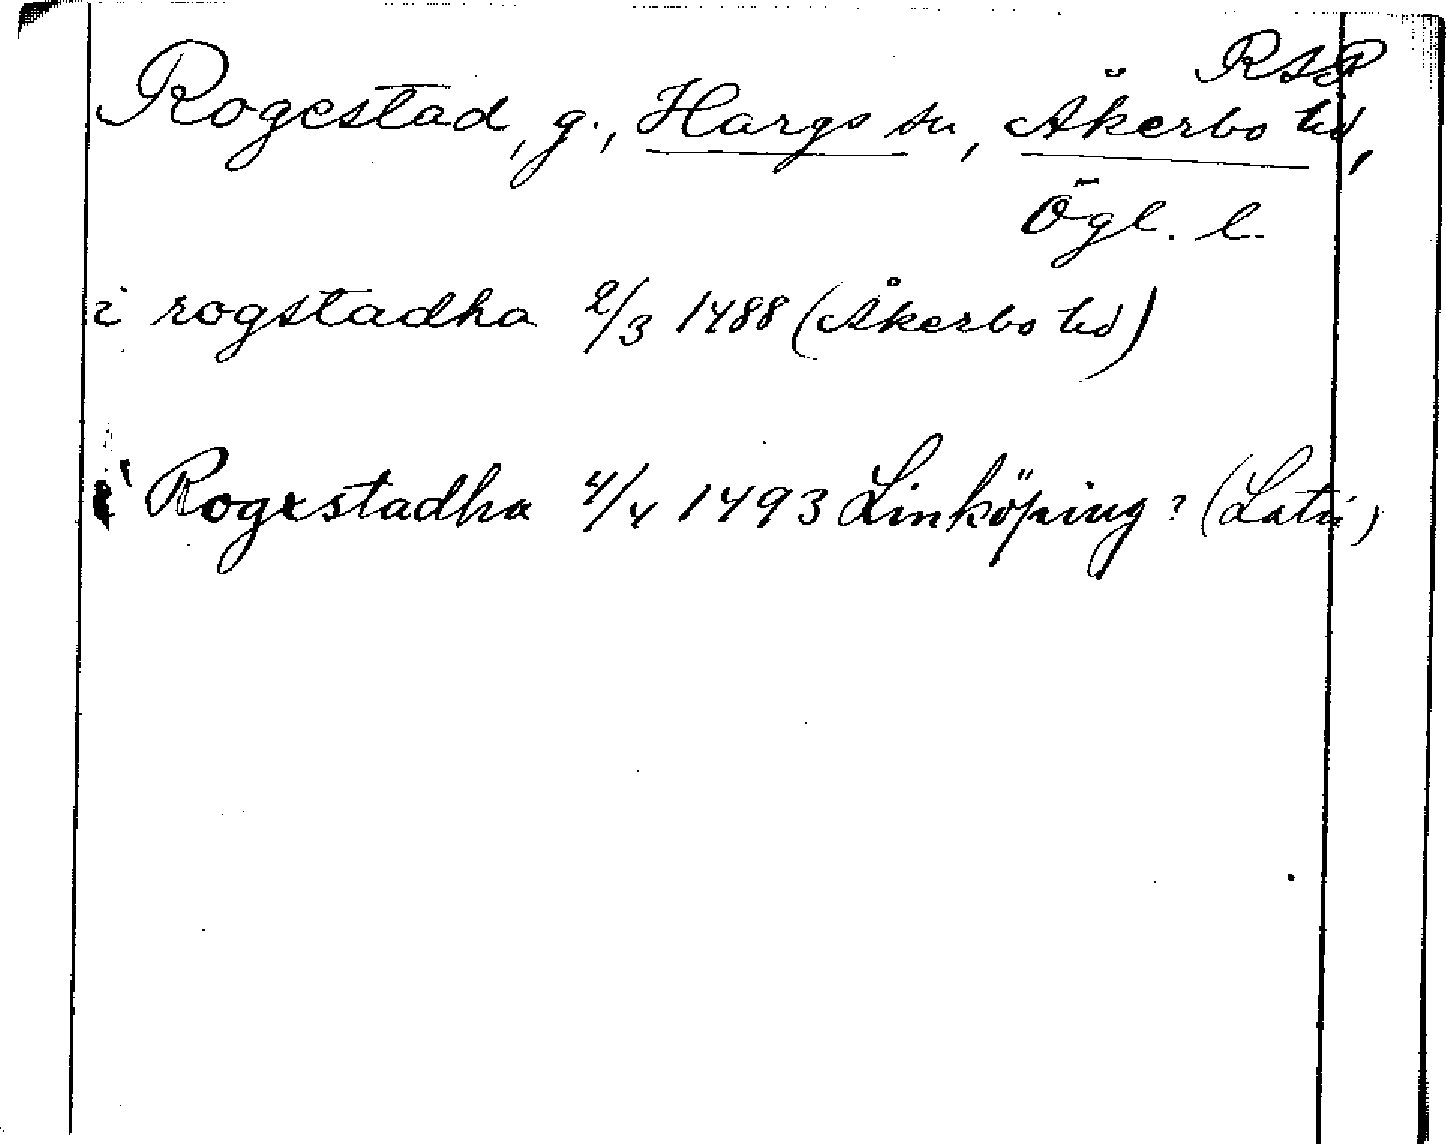 RAP
Rogestad, g., Hargs sn, Åkerbo hd,
Ögl. l.
i rogstadha 2/3 1488 (Åkerbo hd)
i Rogxstadha 4/4 1493 Linköping? (Latin)